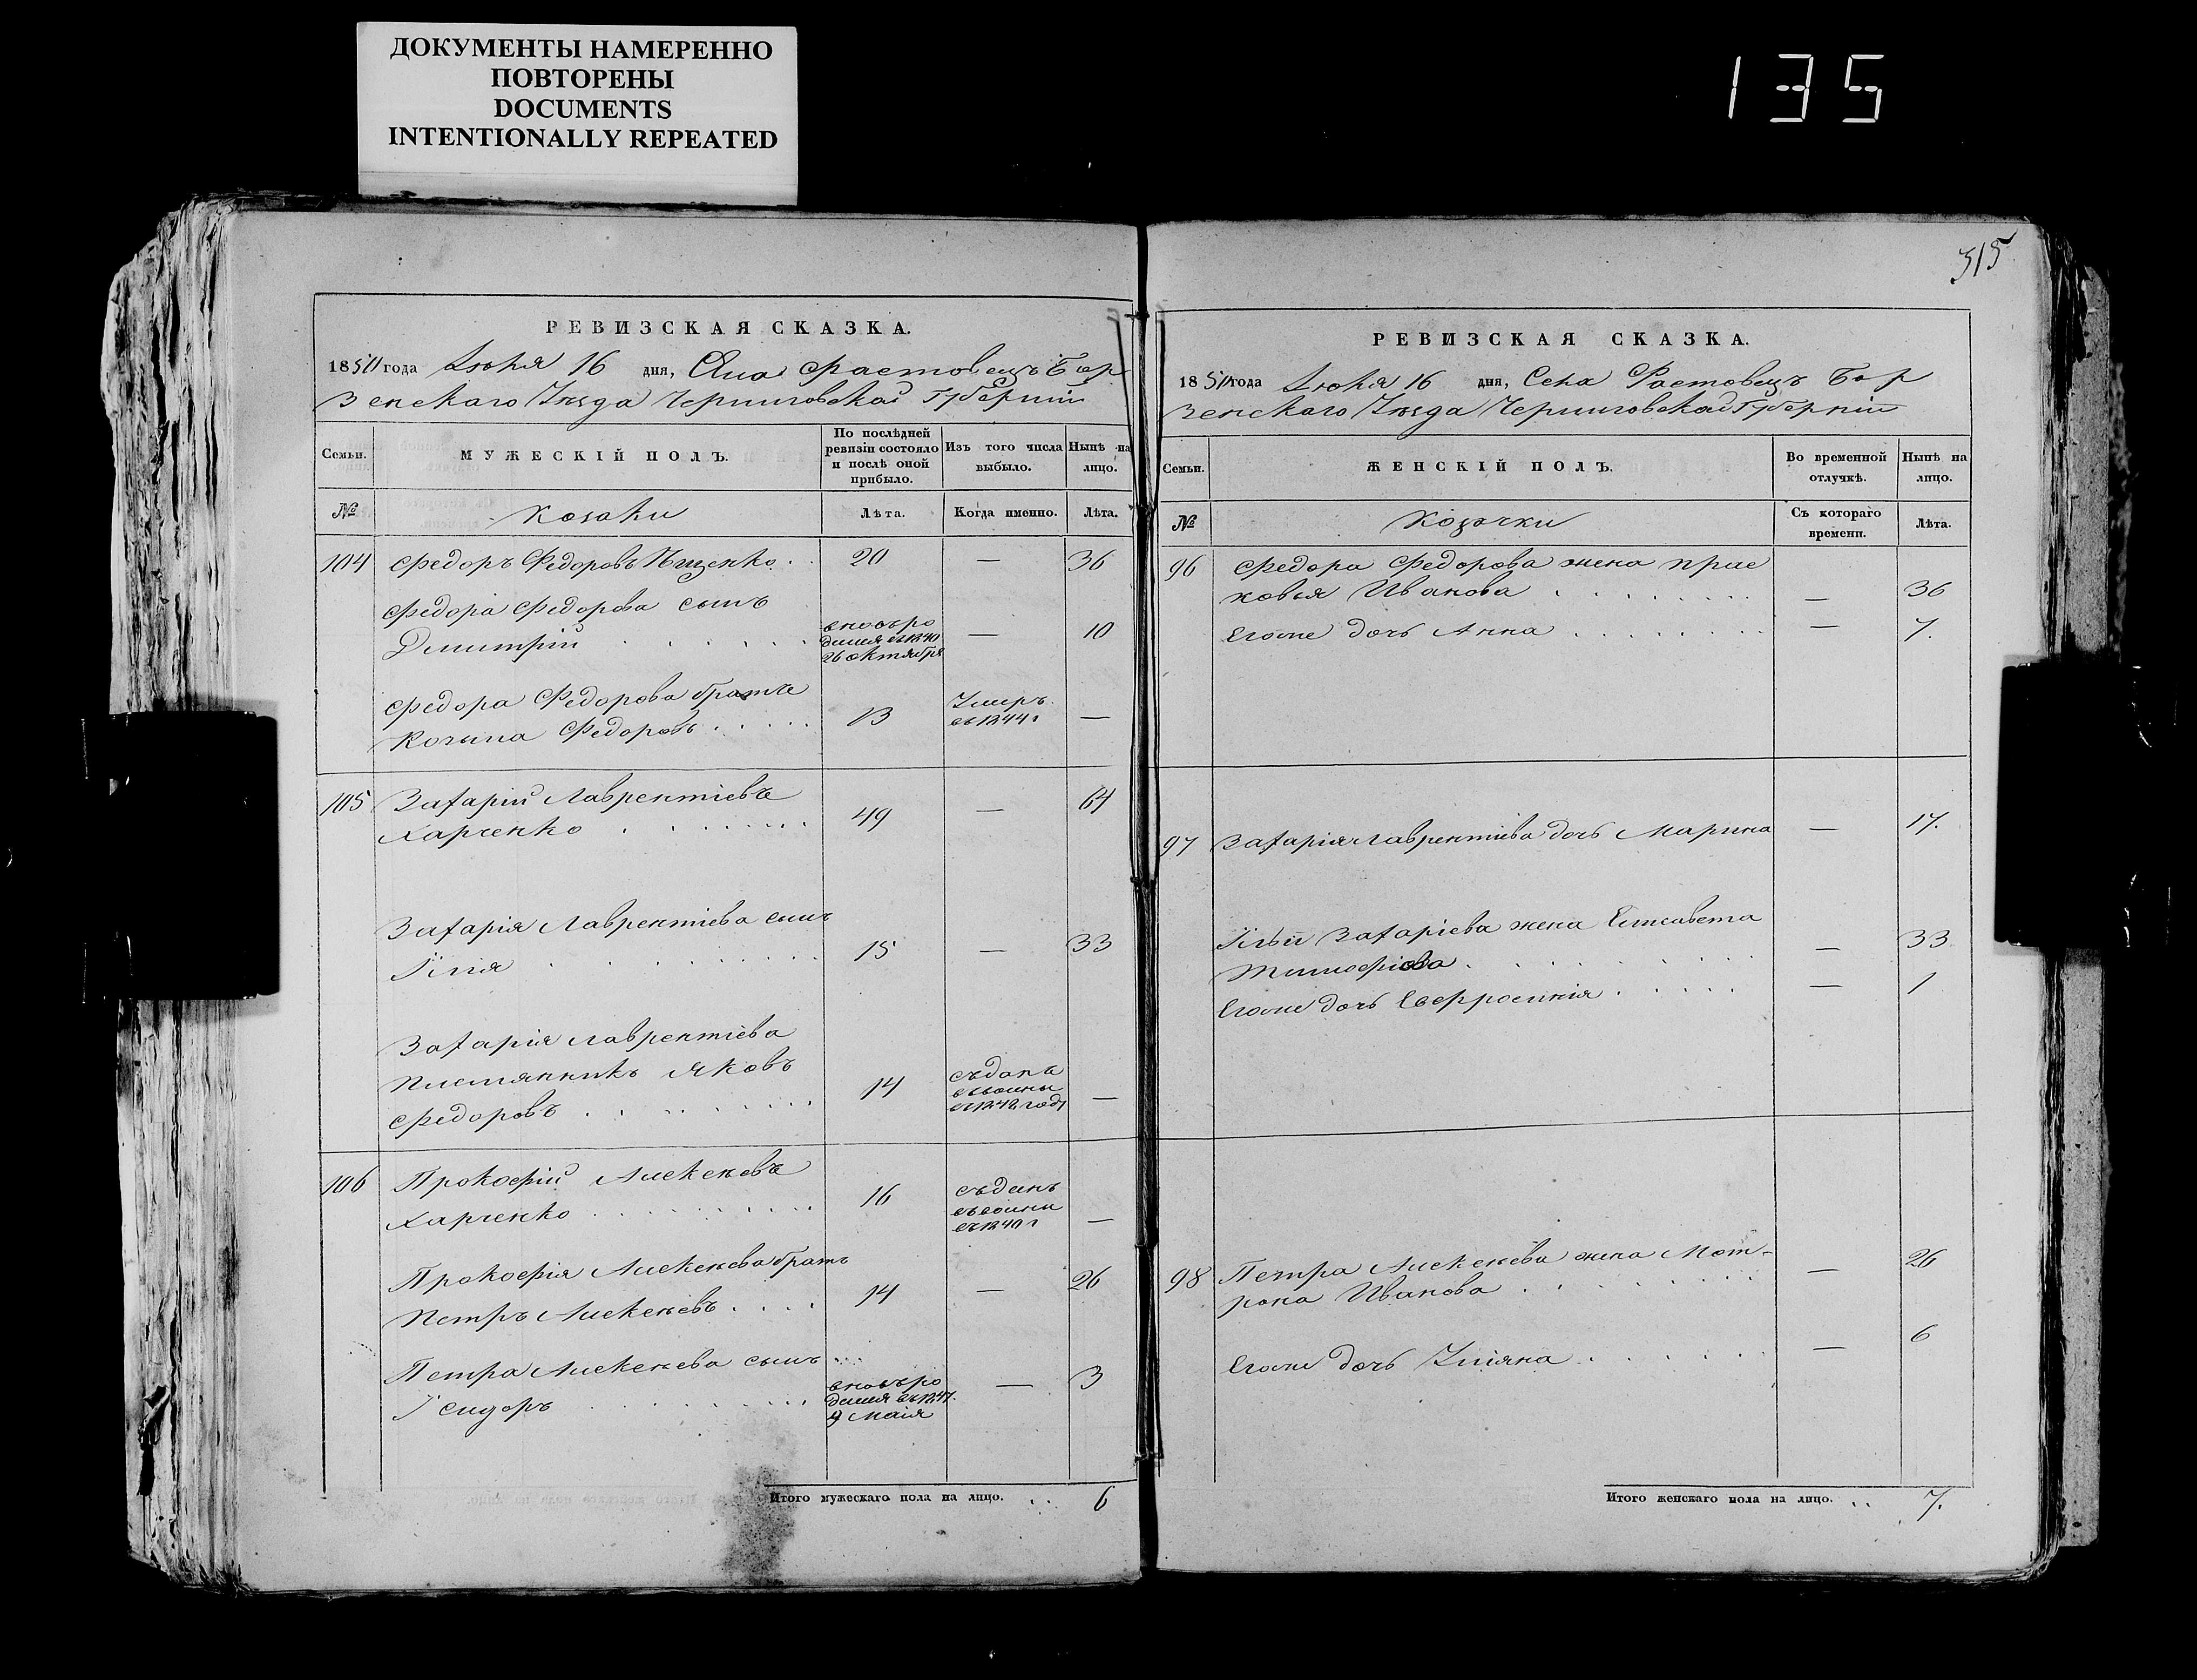 ДОКУМЕНТЫ НАМЕРЕННО
ПОВТОРЕНЫ
DOCUMENTS
INTENTIONALLY REPEATED
135
РЕВИЗСКАЯ СКАЗКА.
1850 года Июня 16 дня, Села Фастовецъ Бор
зенскаго Уѣзда Черниговской Губерніи
Семьи.
МУЖЕСКІЙ ПОЛЪ.
По послѣдней
ревизіи состояло
и послѣ оной
прибыло.
Изъ того числа
выбыло.
Нынѣ на
лицо.
№
Козаки
Лѣта.
Когда именно.
Лѣта.
104 Федоръ Федоровъ Пищенко 20 — 36
Федора Федорова сынъ
Димитрій
вновьро
дился въ 1840
26 октября
— 10
Федора Федорова братъ
Федоровъ 13
Умеръ
въ 1844 г
—
105 Захарій Лаврентіевъ
Харченко 49 — 64
Захарія Лаврентіева сынъ
Илія 15 — 33
Захарія Лаврентіева
племянникъ Яковъ
Федоровъ 14
—
106 Прокофій Алексѣевъ
Харченко 16
—
Прокофія Алексѣева братъ
Петръ Алексѣевъ 14 — 26
Петра Алексѣева сынъ
Ісидоръ
вновьро
дился въ 1847
9 Маія
— 3
Итого мужескаго пола на лицо. 6
315
РЕВИЗСКАЯ СКАЗКА.
1850 года Июня 16 дня, Села Фастовецъ Бор
зенскаго Уѣзда Черниговской Губерніи
Семьи.
ЖЕНСКІЙ ПОЛЪ.
Во временной
отлучкѣ.
Нынѣ на
лицо.
№
Козачки
Съ котораго
времени.
Лѣта.
96 Федора Федорова жена Прас
ковья Иванова — 36
Егоже дочь Анна — 7.
97 Захарія Лаврентіева дочь Марина — 17.
Ильи Захаріева жена Елисавета
Тимофіева — 33
Егоже дочь Евфросинія — 1
98 Петра Алексѣева жена Мот-
рона Иванова — 26
Егоже дочь Уліяна — 6
Итого женскаго пола на лицо. 7.